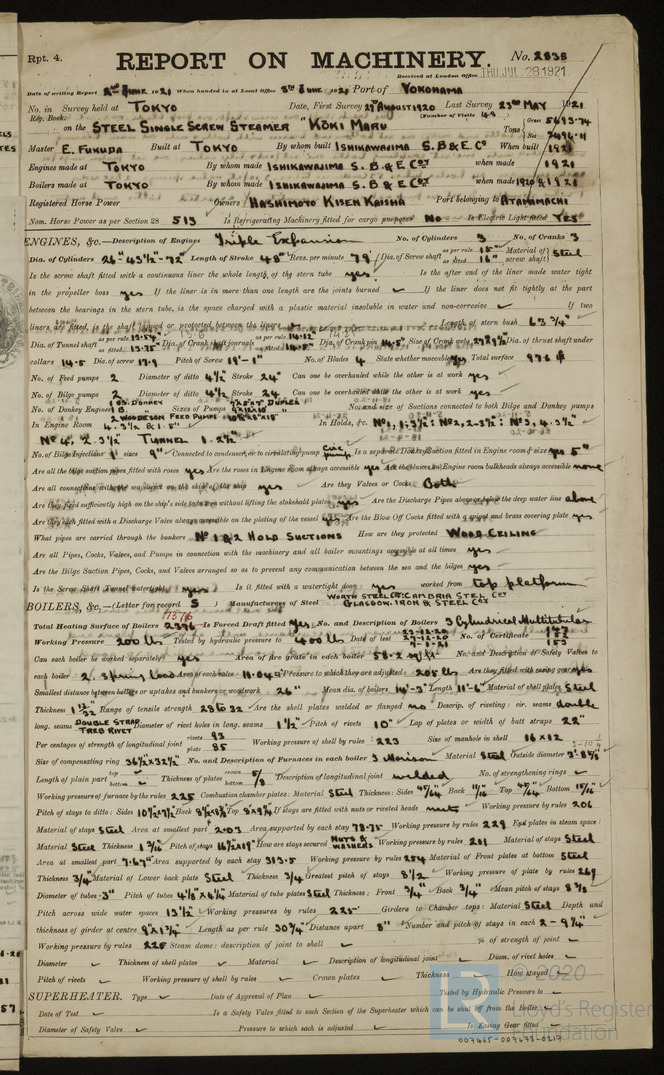 Rpt. 4. REPORT ON MACHINERY. No. 2838
Received at London Office THU. JUL 28 1921
Date of writing Report 2nd June 1921 When handed in at Local Office 5th June 1921 Port of YOKOHAMA
No. in Survey held at TOKYO Date, First Survey 29th AUGUST 1920 Last Survey 23rd MAY 1921
Reg. Book. (Number of Visits 49)
on the STEEL SINGLE SCREW STEAMER "KŌKI MARU" Tons Gross 5693.74 Net
Master E. FUKUDA Built at TOKYO By whom built ISHIKAWAJIMA S.B & E. Co When built 1921
Engines made at TOKYO By whom made ISHIKAWAJIMA S.B & E Coy when made 1921
Boilers made at TOKYO By whom made ISHIKAWAJIMA S. B & E Coy when made 1920 & 1921
Registered Horse Power Owners HASHIMOTO KISEN KAISHA Port belonging to ATAMIMACHI
Nom. Horse Power as per Section 28 513 Is Refrigerating Machinery fitted for cargo purposes NO Is Electric Light fitted YES
ENGINES, &c.—Description of Engines Triple Expansion No. of Cylinders 3 No. of Cranks 3
Dia. of Cylinders 26" 43½"-72" Length of Stroke 48" Revs. per minute 79 Dia. of Screw shaft as per rule 15" as fitted 16" Material of screw shaft Steel
Is the screw shaft fitted with a continuous liner the whole length of the stern tube yes Is the after end of the liner made water tight
in the propeller boss yes If the liner is in more than one length are the joints burned ✓ If the liner does not fit tightly at the part
between the bearings in the stern tube, is the space charged with a plastic material insoluble in water and non-corrosive ✓ If two
liners are fitted, is the shaft lapped or protected between the liners ✓ Length of stern bush 63¾"
Dia. of Tunnel shaft as per rule 13.54" as fitted 13.75" Dia. of Crank shaft journals as per rule 14.12" as fitted 14.5" Dia. of Crank pin 14.5" Size of Crank webs Dia. of thrust shaft under
collars 14.5 Dia. of screw 17.9 Pitch of Screw 19'-1" No. of Blades 4 State whether moveable yes Total surface 97.6
No. of Feed pumps 2 Diameter of ditto 4½" Stroke 24" Can one be overhauled while the other is at work yes
No. of Bilge pumps 2 Diameter of ditto 4½" Stroke 24" Can one be overhauled while the other is at work yes
No. of Donkey Engines Sizes of Pumps No. and size of Suctions connected to both Bilge and Donkey pumps
2 WOODESON FEED PUMPS
In Engine Room 4. 3½ & 1. 5" In Holds, &c. No1, 1-3½: No2, 2-3½: No3, 4.3½"
No4, 2. 3½" TUNNEL 1. 2½"
No. of Bilge Injections 1 sizes 9" Connected to condenser, or to circulating pump Circ pump Is a separate Donkey Suction fitted in Engine room & size yes 5"
Are all the bilge suction pipes fitted with roses yes Are the roses in Engine room always accessible yes Are the sluices on Engine room bulkheads always accessible none
Are all connections with the sea direct on the skin of the ship yes Are they Valves or Cocks Both
Are they fixed sufficiently high on the ship's side to be seen without lifting the stokehold plates yes Are the Discharge Pipes above or below the deep water line above
Are they each fitted with a Discharge Valve always accessible on the plating of the vessel yes Are the Blow Off Cocks fitted with a spigot and brass covering plate yes
What pipes are carried through the bunkers No 1 & 2 HOLD SUCTIONS How are they protected WOOD CEILING
Are all Pipes, Cocks, Valves, and Pumps in connection with the machinery and all boiler mountings accessible at all times yes
Are the Bilge Suction Pipes, Cocks, and Valves arranged so as to prevent any communication between the sea and the bilges yes
Is the Screw Shaft Tunnel watertight yes Is it fitted with a watertight door yes worked from top platform
BOILERS, &c.—(Letter for record S) Manufacturers of Steel WORTH STEEL Co; CAMBRIA STEL Coy GLASGOW. IRON & STEEL Coy
7376
Total Heating Surface of Boilers Is Forced Draft fitted yes No. and Description of Boilers 3 Cylindrical Multitubular
Working Pressure 200 lbs Tested by hydraulic pressure to 400 lbs Date of test 22-12-20 7-1-21 No. of Certificate 152 153
Can each boiler be worked separately yes Area of fire grate in each boiler 58.2 sq ft No. and Description of Safety Valves to
each boiler 2. Spring Load Area of each valve 11.04 Pressure to which they are adjusted 205 lbs Are they fitted with easing gear yes
Smallest distance between boilers or uptakes and bunkers or woodwork 26" Mean dia. of boilers 14'-3" Length 11'-6" Material of shell plates Steel
Thickness 1 7/32 Range of tensile strength 28 to 32 Are the shell plates welded or flanged no Descrip. of riveting: cir. seams double
long. seams DOUBLE STRAP TREB RIVET Diameter of rivet holes in long. seams 1½" Pitch of rivets 10" Lap of plates or width of butt straps 22"
Per centages of strength of longitudinal joint rivets 93 plate 85 Working pressure of shell by rules 223 Size of manhole in shell 16 x 12
Size of compensating ring 36½ x 32½" No. and Description of Furnaces in each boiler 3 Morison Material Steel Outside diameter
Length of plain part top bottom Thickness of plates crown bottom 5/8 Description of longitudinal joint welded No. of strengthening rings ✓
Working pressure of furnace by the rules 225 Combustion chamber plates: Material Steel Thickness: Sides 45/64 Back 11/16 Top 45/64 Bottom 15/16
Pitch of stays to ditto: Sides Back Top If stays are fitted with nuts or riveted heads nuts Working pressure by rules 206
Material of stays Steel Area at smallest part 2.07 Area supported by each stay 78.75 Working pressure by rules 229 End plates in steam space:
Material Steel Thickness Pitch of stays 16½ x 19" How are stays secured NUTS & WASHERS Working pressure by rules 201 Material of stays Steel
Area at smallest part 7.67" Area supported by each stay 313.5 Working pressure by rules 254 Material of Front plates at bottom Steel
Thickness 3/4" Material of Lower back plate Steel Thickness 3/4 Greatest pitch of stays 8½ Working pressure of plate by rules 269
Diameter of tubes 3" Pitch of tubes 4⅛ x 4¼ Material of tube plates Steel Thickness: Front 3/4" Back 3/4" Mean pitch of stays 8⅜
Pitch across wide water spaces 13½ Working pressures by rules 225 Girders to Chamber tops: Material Steel Depth and
thickness of girder at centre 9" x 1¾" Length as per rule 30¾" Distance apart 8" Number and pitch of stays in each 2 - 9¼"
Working pressure by rules 225 Steam dome: description of joint to shell ✓ % of strength of joint ✓
Diameter ✓ Thickness of shell plates ✓ Material ✓ Description of longitudinal joint ✓ Diam. of rivet holes ✓
Pitch of rivets ✓ Working pressure of shell by rules ✓ Crown plates ✓ Thickness ✓ How stayed ✓
SUPERHEATER. Type ✓ Date of Approval of Plan ✓ Tested by Hydraulic Pressure to ✓
Date of Test ✓ Is a Safety Valve fitted to each Section of the Superheater which can be shut off from the Boiler ✓
Diameter of Safety Valve ✓ Pressure to which each is adjusted ✓ Is Easing Gear fitted ✓
© 2020
Lloyd's Register
Foundation
007465-007478-0217